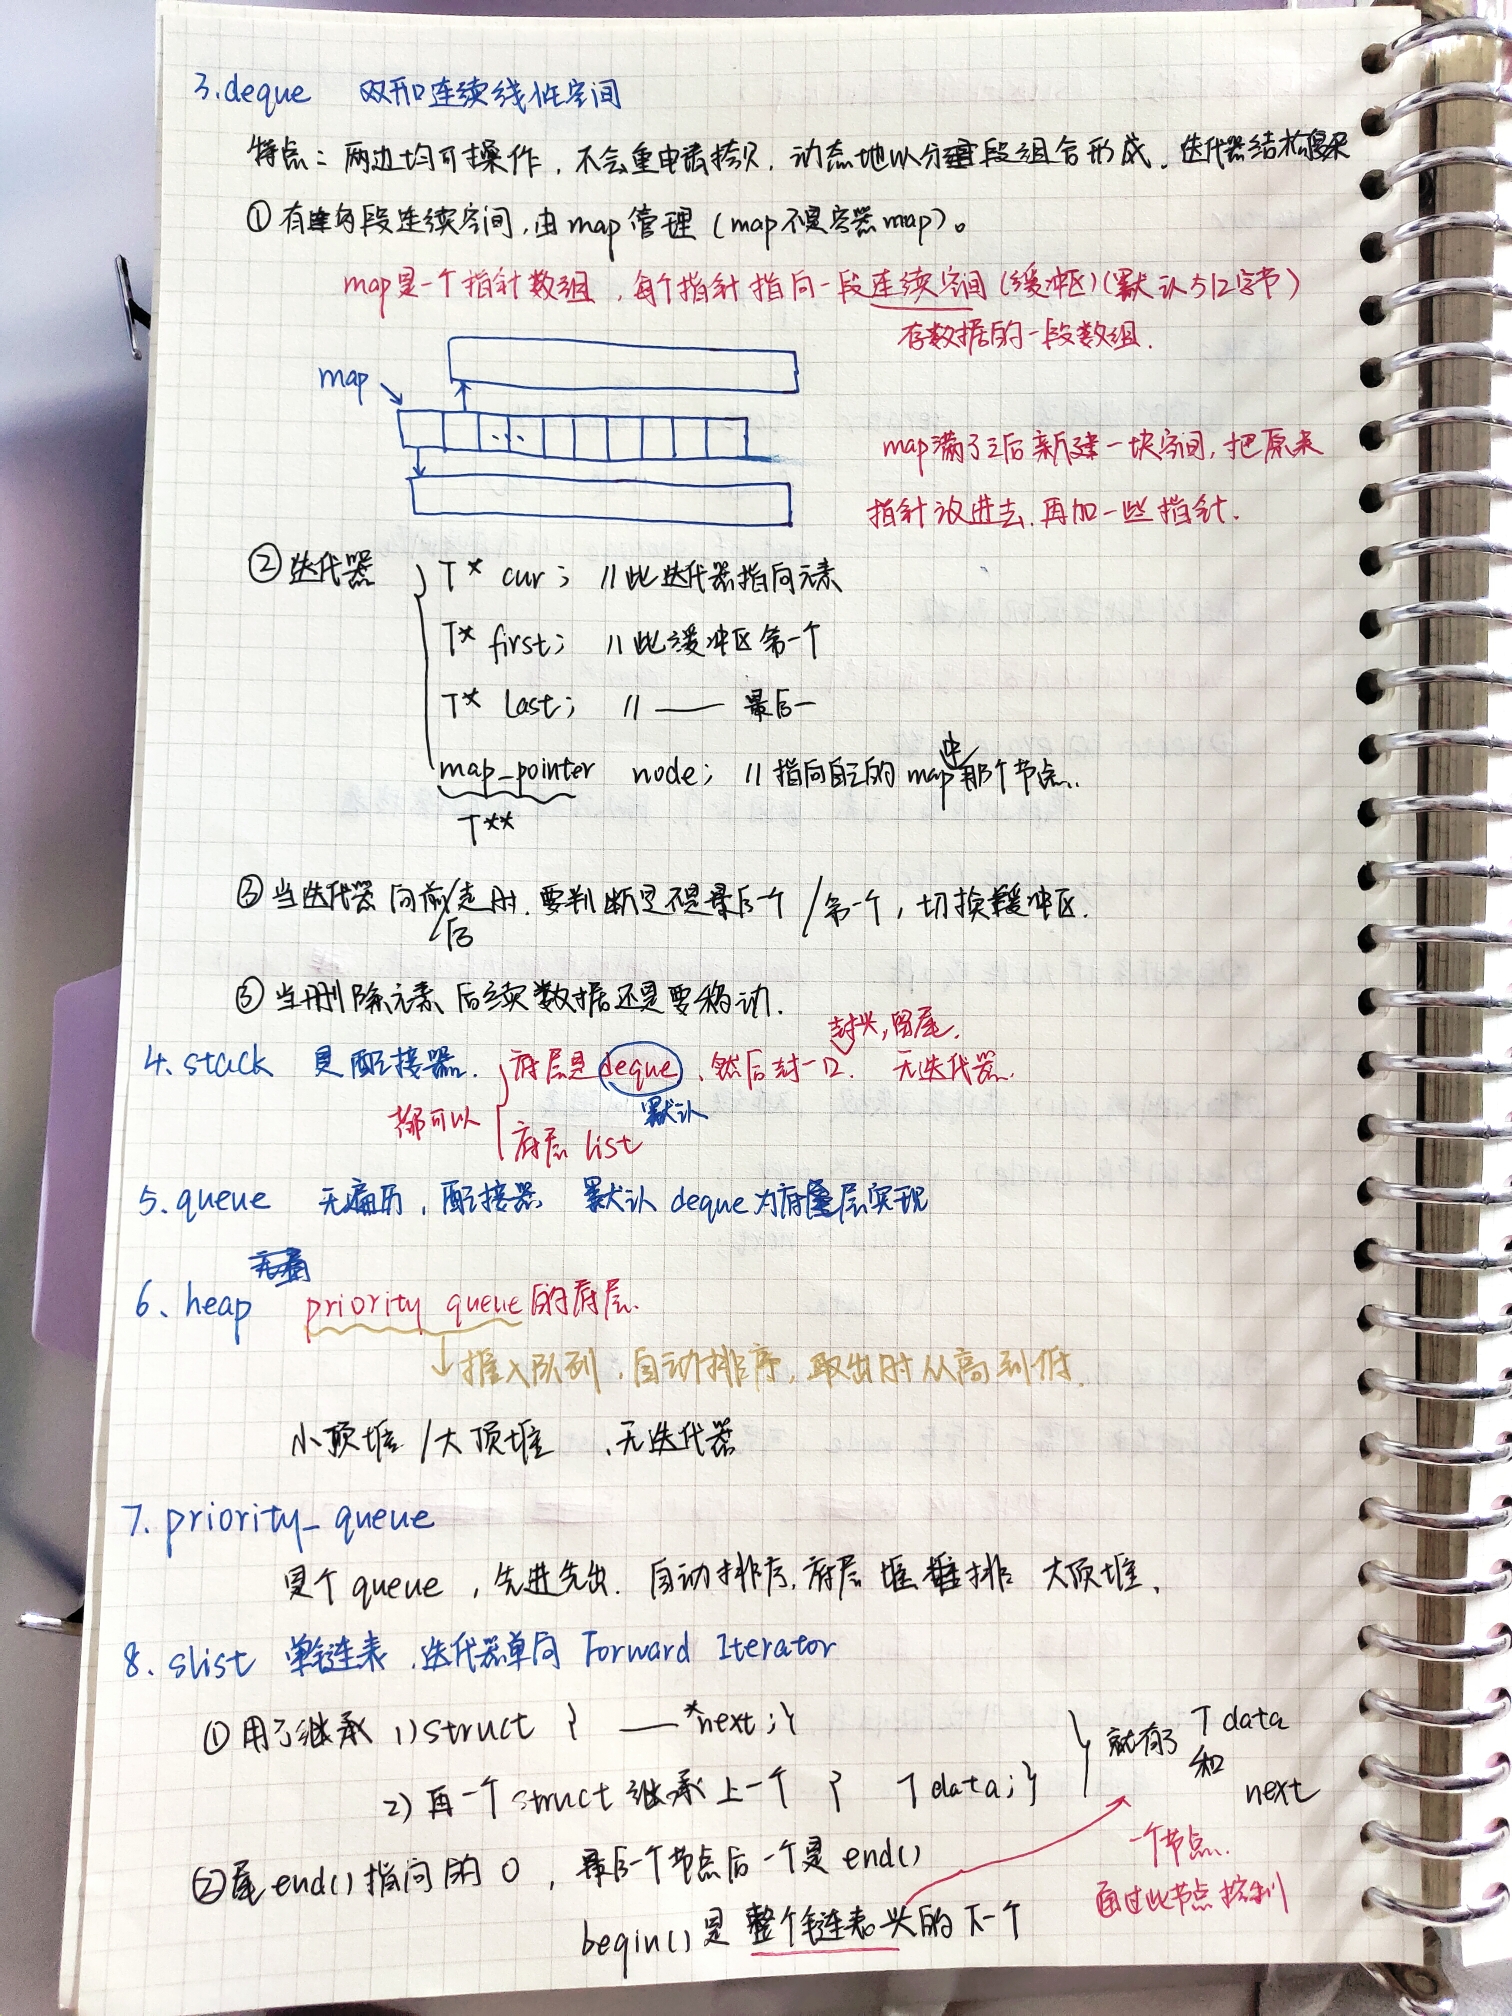 3.deque 双开口连续线性空间
特点：两边均可操作，不会重申请拷贝，动态地以分段组合形成，迭代器结构复杂
①有多段连续空间，由map管理（map不是容器map）。
map是一个指针数组，每个指针指向一段连续空间（缓冲区）（默认512字节）
存数据的一段数组.
map
...
map满了之后新建一块空间，把原来
指针放进去，再加一些指针.
②迭代器 T* cur； //此迭代器指向元素
T* first； //此缓冲区第一个
T* last； // —— 最后一
map_pointer node； //指向自己的map中那个节点.
T**
③当迭代器向前/后走时，要判断是不是最后个/第一个，切换缓冲区.
③当删除元素，后续数据还是要移动.
4. stack 是配接器. 底层是deque，然后封一口. 无迭代器.
封头，留尾.
默认
都可以
底层 list
5. queue 无遍历，配接器 默认deque为底层实现
6. heap priority queue的底层.
↓推入队列，自动排序，取出时从高到低.
小顶堆/大顶堆 ，无迭代器
7. priority_queue
是个queue，先进先出. 自动排序，底层 堆 排 大顶堆.
8. slist 单链表，迭代器单向 Forward Iterator
①用了继承 1) struct { —— *next；}
2) 再一个struct继承上一个 { T data；}
} 就有了 T data
和
next
②尾end()指向的0，最后一个节点后一个是end()
begin()是整个链表头的下一个
一个节点.
通过此节点控制